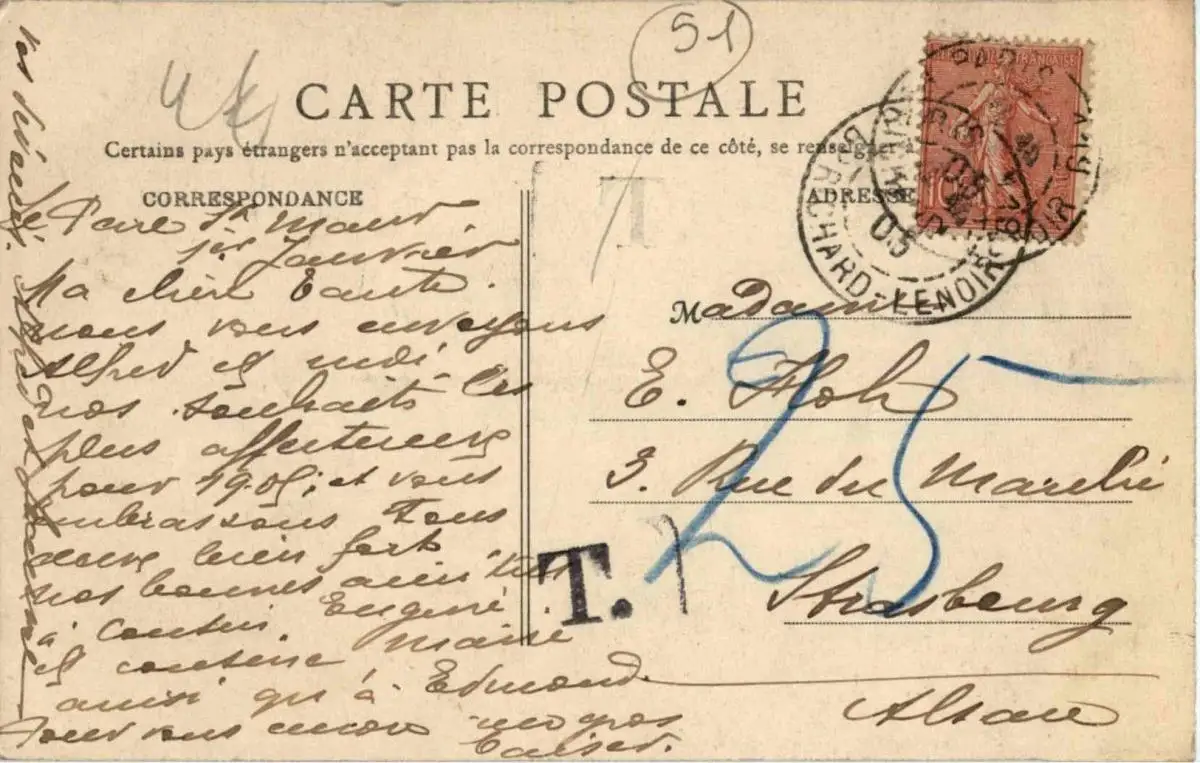 51
CARTE POSTALE
Certains pays étrangers n'acceptant pas la correspondance de ce côté, se renseigner à
CORRESPONDANCE
ADRESSE
T
Parc St Maur
1er Janvier
Ma chère Tante.
nous vous envoyons
Alfred et moi
nos souhaits les
plus affectueux
pour 1905, et vous
embrassons Tous
deux bien fort
nos bonnes amitiés
à Cousin Eugène
et cousine Marie
ainsi qu'à Edmond.
Pour vous encore un gros
baiser.
Madame
E.
3. Rue du Marché
Strasbourg
Alsace
T.
25
RICHARD-LENOIR
05
PARIS
10